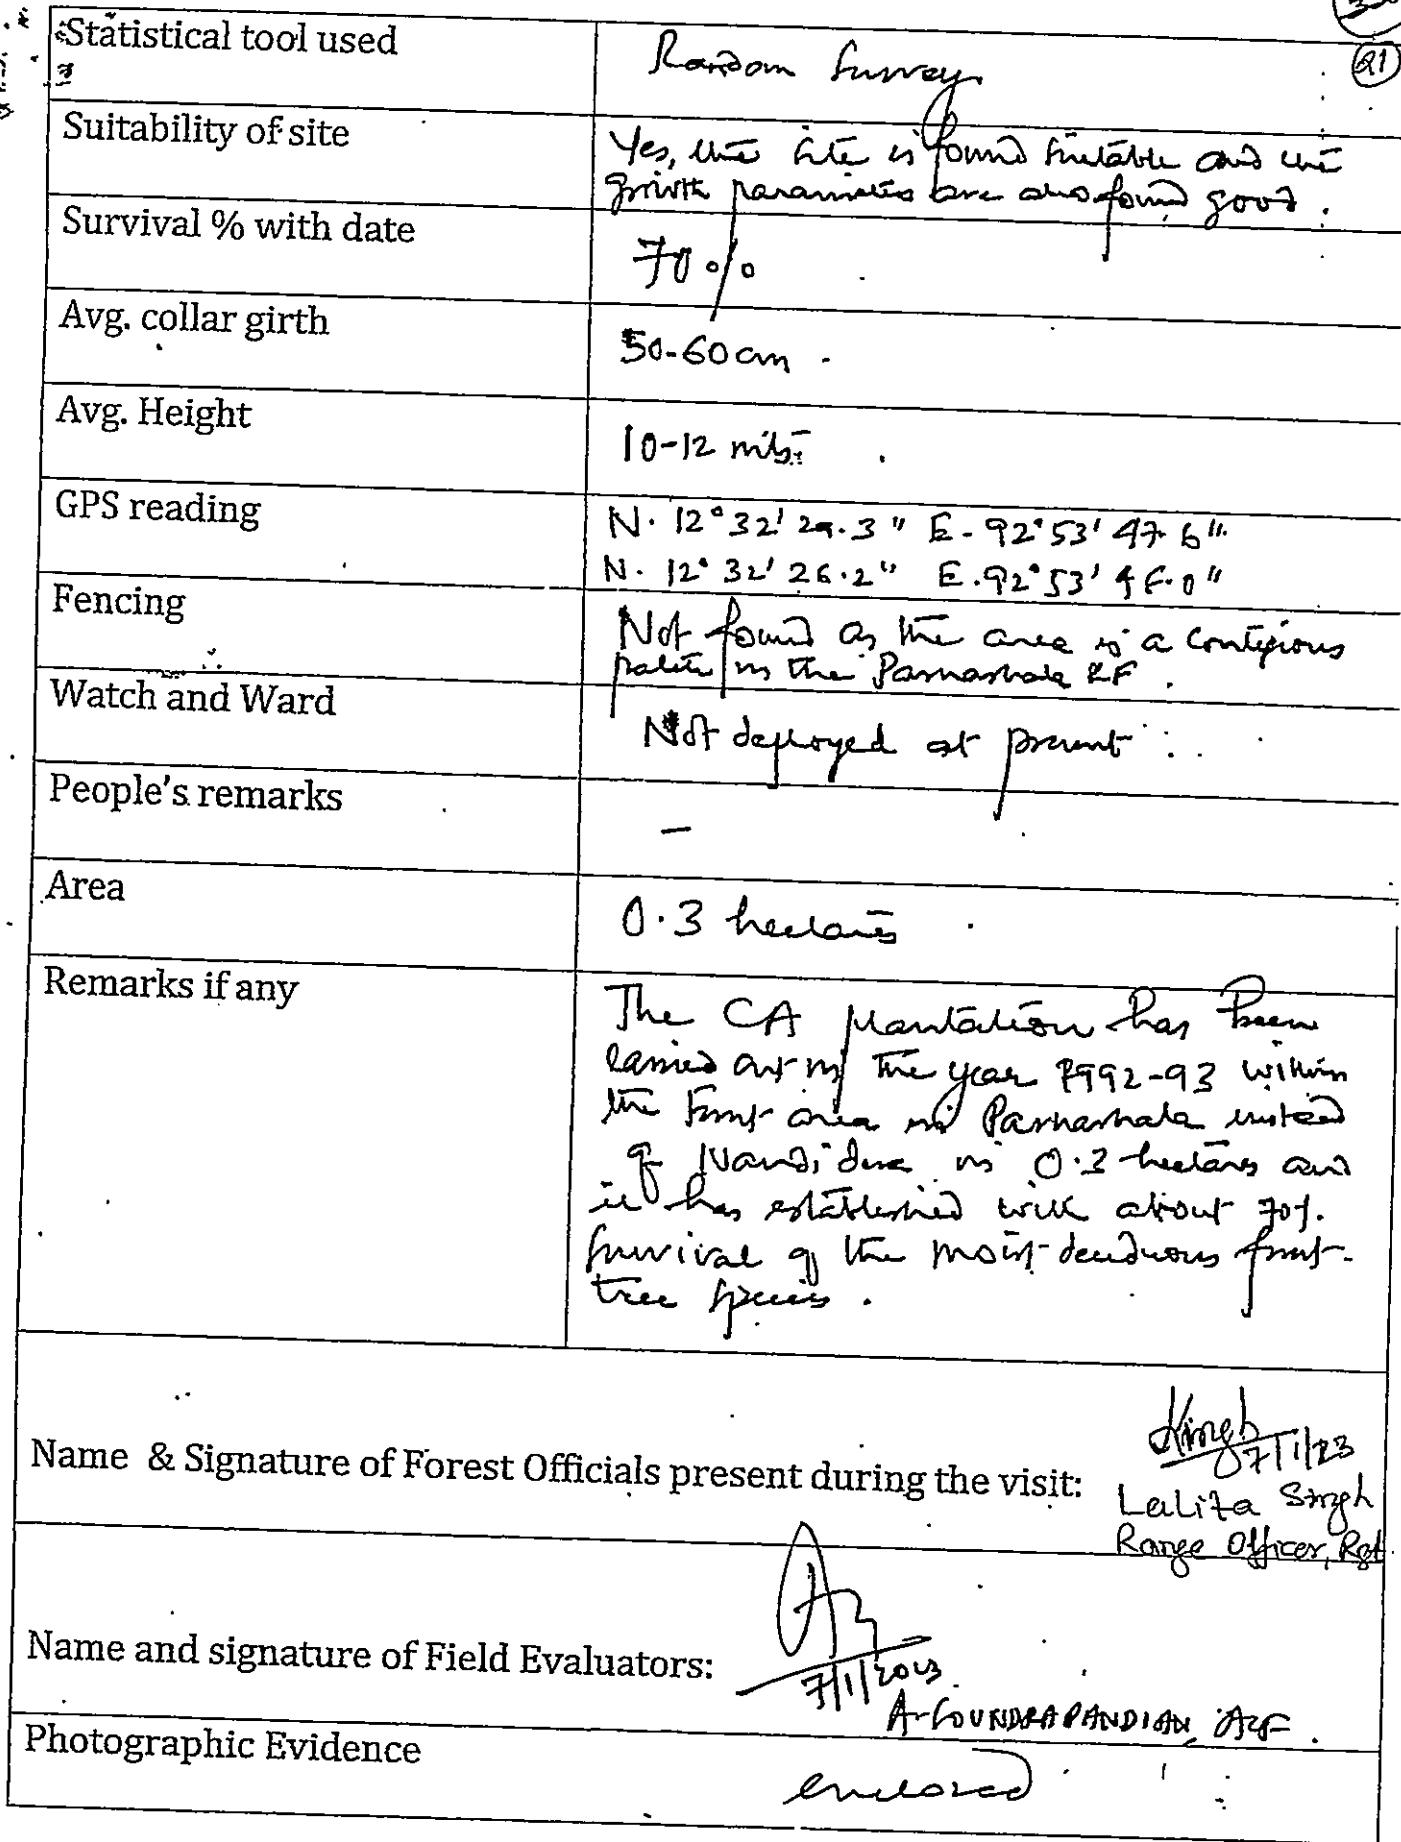 21
Statistical tool used
Random Survey
Suitability of site
Yes, the site is found suitable and the
growth parameters are also found good.
Survival % with date
70%
Avg. collar girth
50-60 cm.
Avg. Height
10-12 mts.
GPS reading
N. 12° 32' 29.3" E - 92° 53' 47.6"
N. 12° 32' 26.2" E. 92° 53' 46.0"
Fencing
Not found as the area is a contigious
in the Parnashala RF.
Watch and Ward
Not deployed at present
People's remarks
-
Area
0.3 hectares
Remarks if any
The CA plantation has been
carried out in the year 1992-93 within
the Forest area in Parnashala instead
of in 0.3 hectares and
it has established with about 70%
survival of the moist-deciduous forest
tree species.
Name & Signature of Forest Officials present during the visit:
7/1/23
Lalita Singh
Range Officer, Rgt
Name and signature of Field Evaluators:
7/1/2023
Photographic Evidence
enclosed